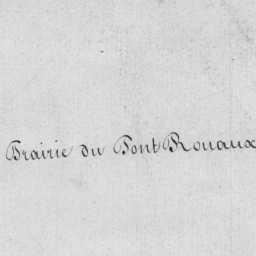 Prairie du Pont Rouaux